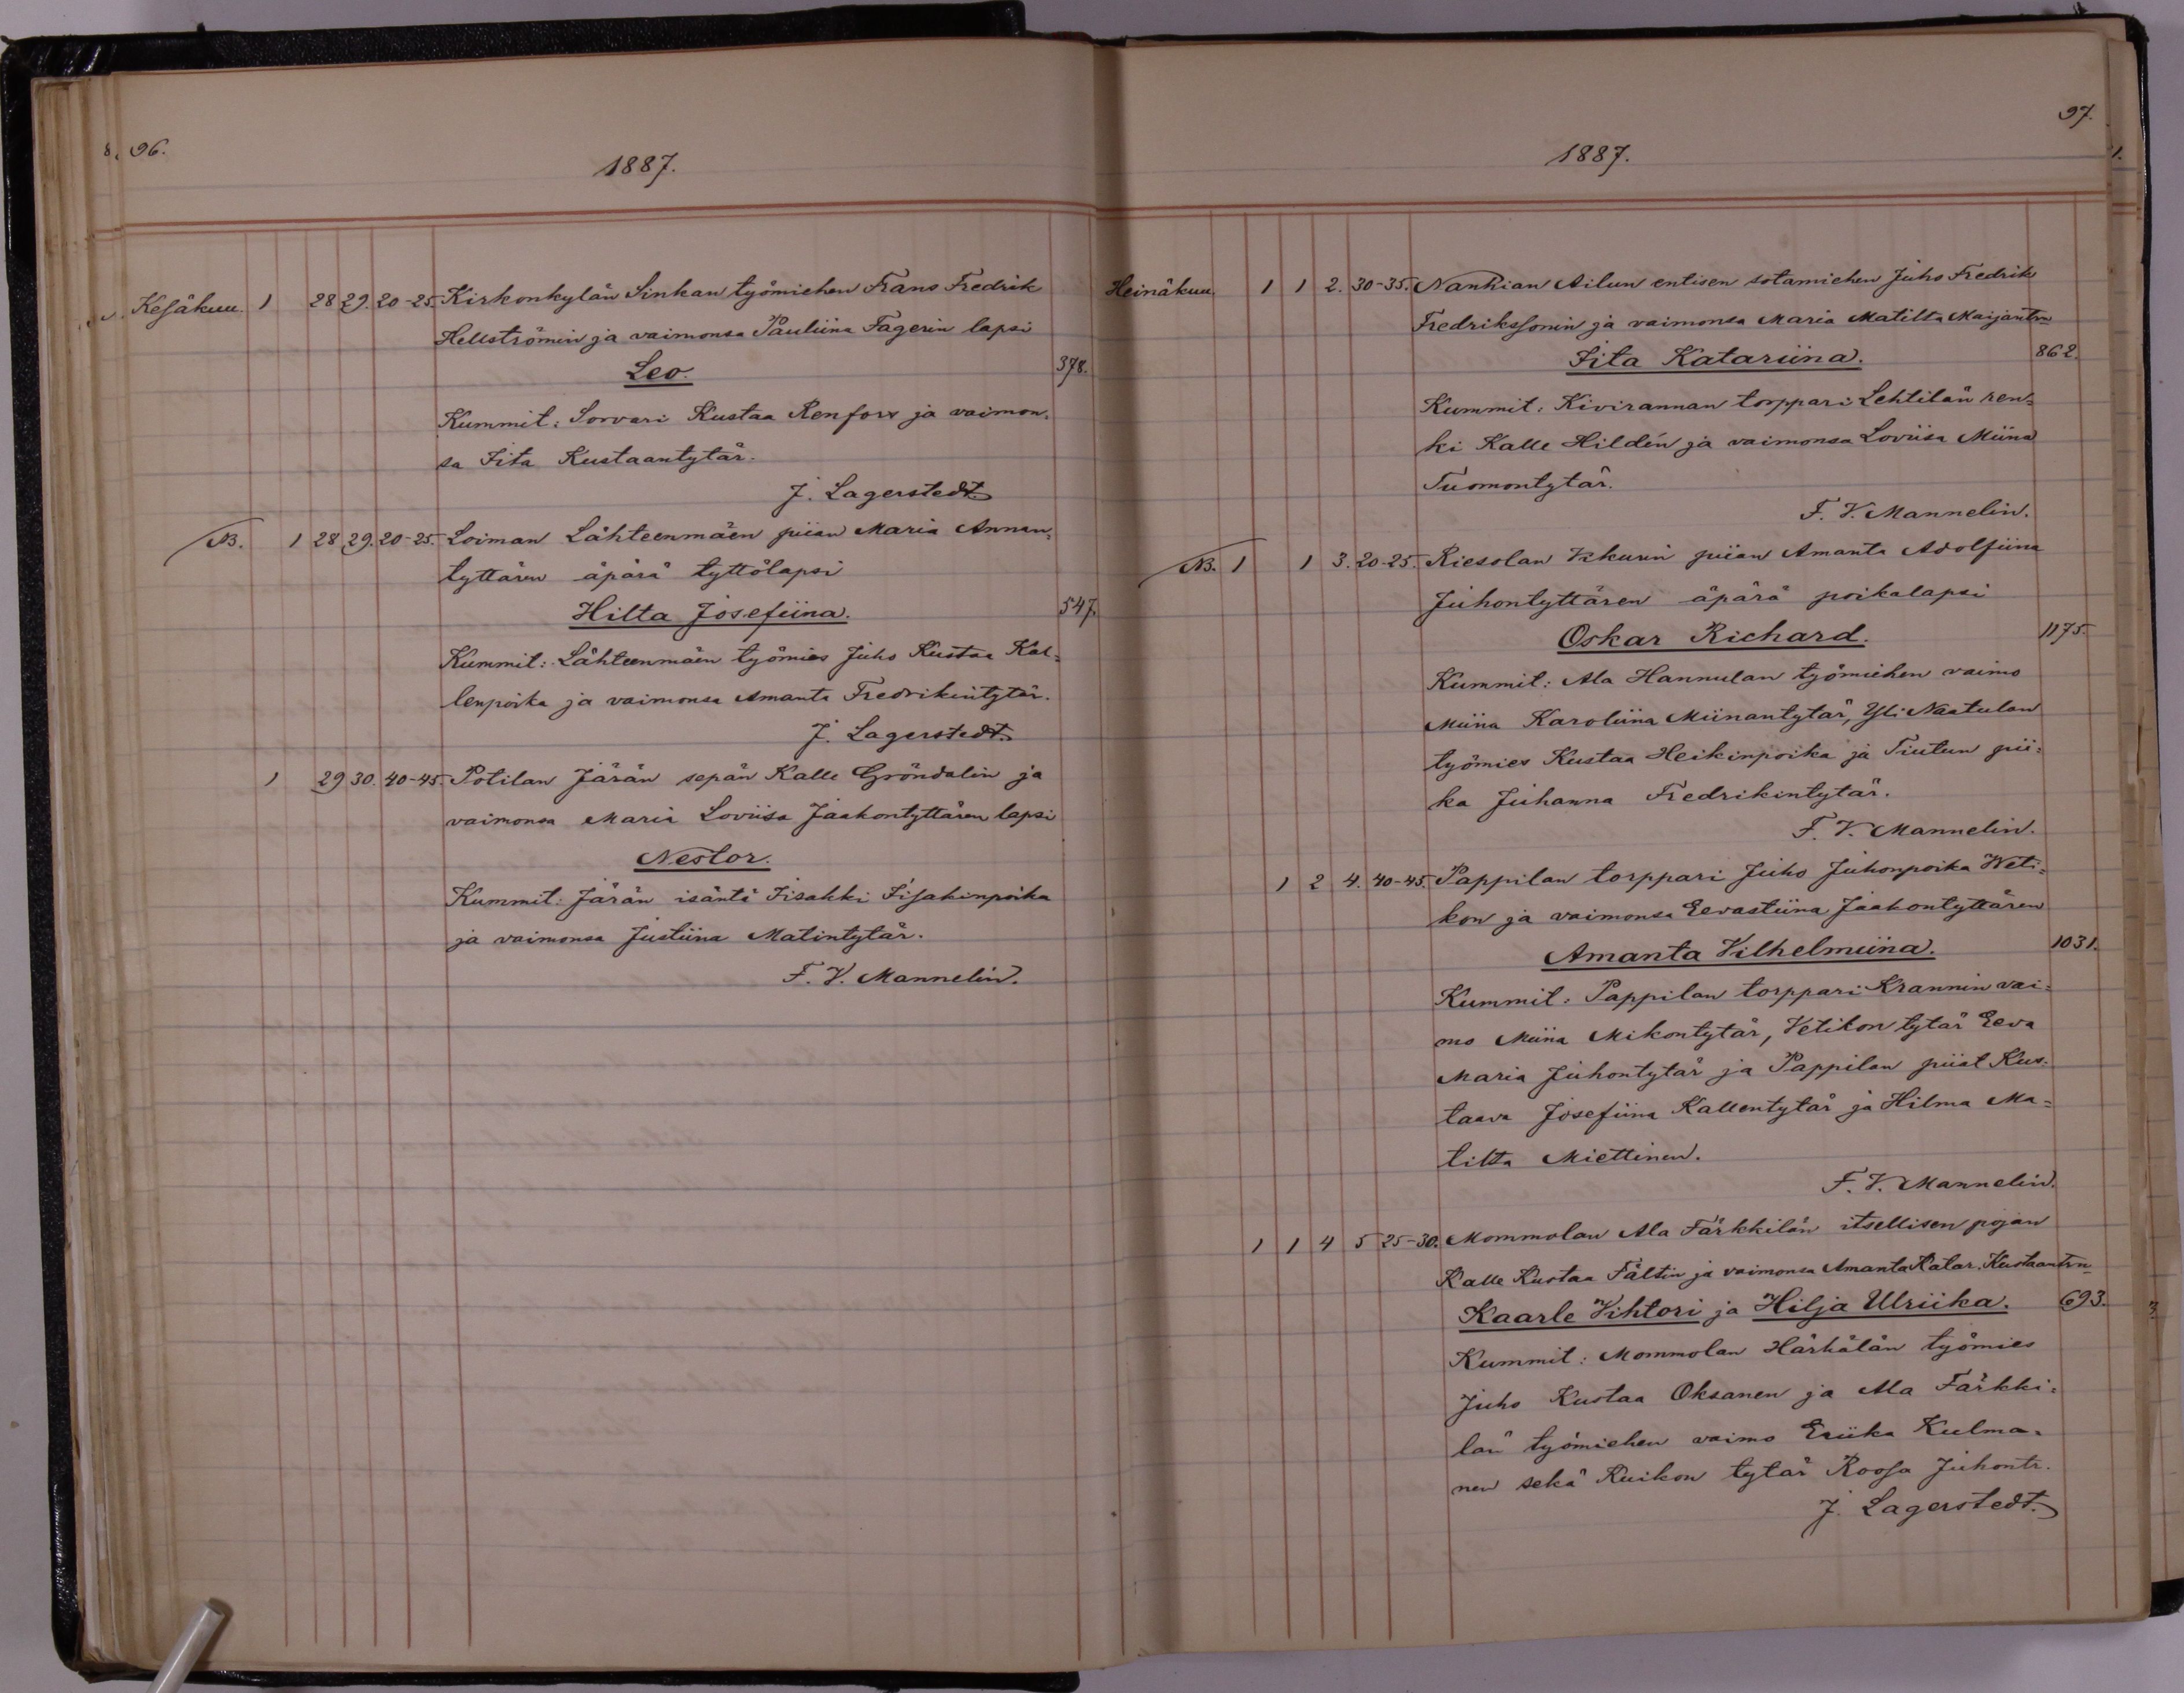 96.
1887.
Kesäkuu. 1 28 29. 20-25. Kirkonkylän Sinkan työmiehen Frans Fredrik
Hellströmin ja vaimonsa Pauliina Fagerin lapsi
Leo. 378.
Kummit: Sorvari Kustaa Renfors ja vaimon-
sa Iita Kustaantytär.
J. Lagerstedt.
NB. 1 28 29. 20-25. Loiman Lähteenmäen piian Maria Annan-
tyttären äpärä tyttölapsi
Hilta Josefiina. 547.
Kummit: Lähteenmäen työmies Juho Kustaa Kal-
lenpoika ja vaimonsa Amanta Fredrikintytär.
J. Lagerstedt.
1 29 30. 40-45. Potilan Järän sepän Kalle Gröndalin ja
vaimonsa Maria Loviisa Jaakontyttären lapsi
Nestor.
Kummit: Järän isäntä Iisakki Iisakinpoika
ja vaimonsa Justiina Matintytär.
F. V. Mannelin.
97.
1887.
Heinäkuu. 1 1 2. 30-35. Nanhian Ailun entisen sotamiehen Juho Fredrik
Fredrikssonin ja vaimonsa Maria Matilta Maijantrn
Iita Katariina. 862.
Kummit: Kivirannan torppari Lehtilän ren-
ki Kalle Hildén ja vaimonsa Loviisa Miina
Tuomontytär.
F. V. Mannelin.
NB. 1 1 3. 20-25. Riesolan piian Amanta Adolfiina
Juhontyttären äpärä poikalapsi
Oskar Richard. 1175.
Kummit: Ala Hannulan työmiehen vaimo
Miina Karoliina Miinantytär, Yli Naatulan
työmies Kustaa Heikinpoika ja Tiutun pii-
ka Juhanna Fredrikintytär.
F. V. Mannelin.
1 2 4. 40-45. Pappilan torppari Juho Juhonpoika Weti-
kon ja vaimonsa Eevastiina Jaakontyttären
Amanta Vilhelmiina. 1031.
Kummit: Pappilan torppari Krannin vai-
mo Miina Mikontytär, Vetikon tytär Eeva
Maria Juhontytär ja Pappilan piiat Kus-
taava Josefiina Kallentytär ja Hilma Ma-
tilta Miettinen.
F. V. Mannelin.
1 1 4 5 25-30. Mommolan Ala Färkkilän itsellisen pojan
Kalle Kustaa Fältin ja vaimonsa Amanta Katar. Kustaantrn
Kaarle Vihtori ja Hilja Ulriika. 693.
Kummit: Mommolan Härhälän työmies
Juho Kustaa Oksanen ja Ala Färkki-
län työmiehen vaimo Eriika Kulma-
nen sekä Kuikon tytär Roosa Juhontr.
J. Lagerstedt.